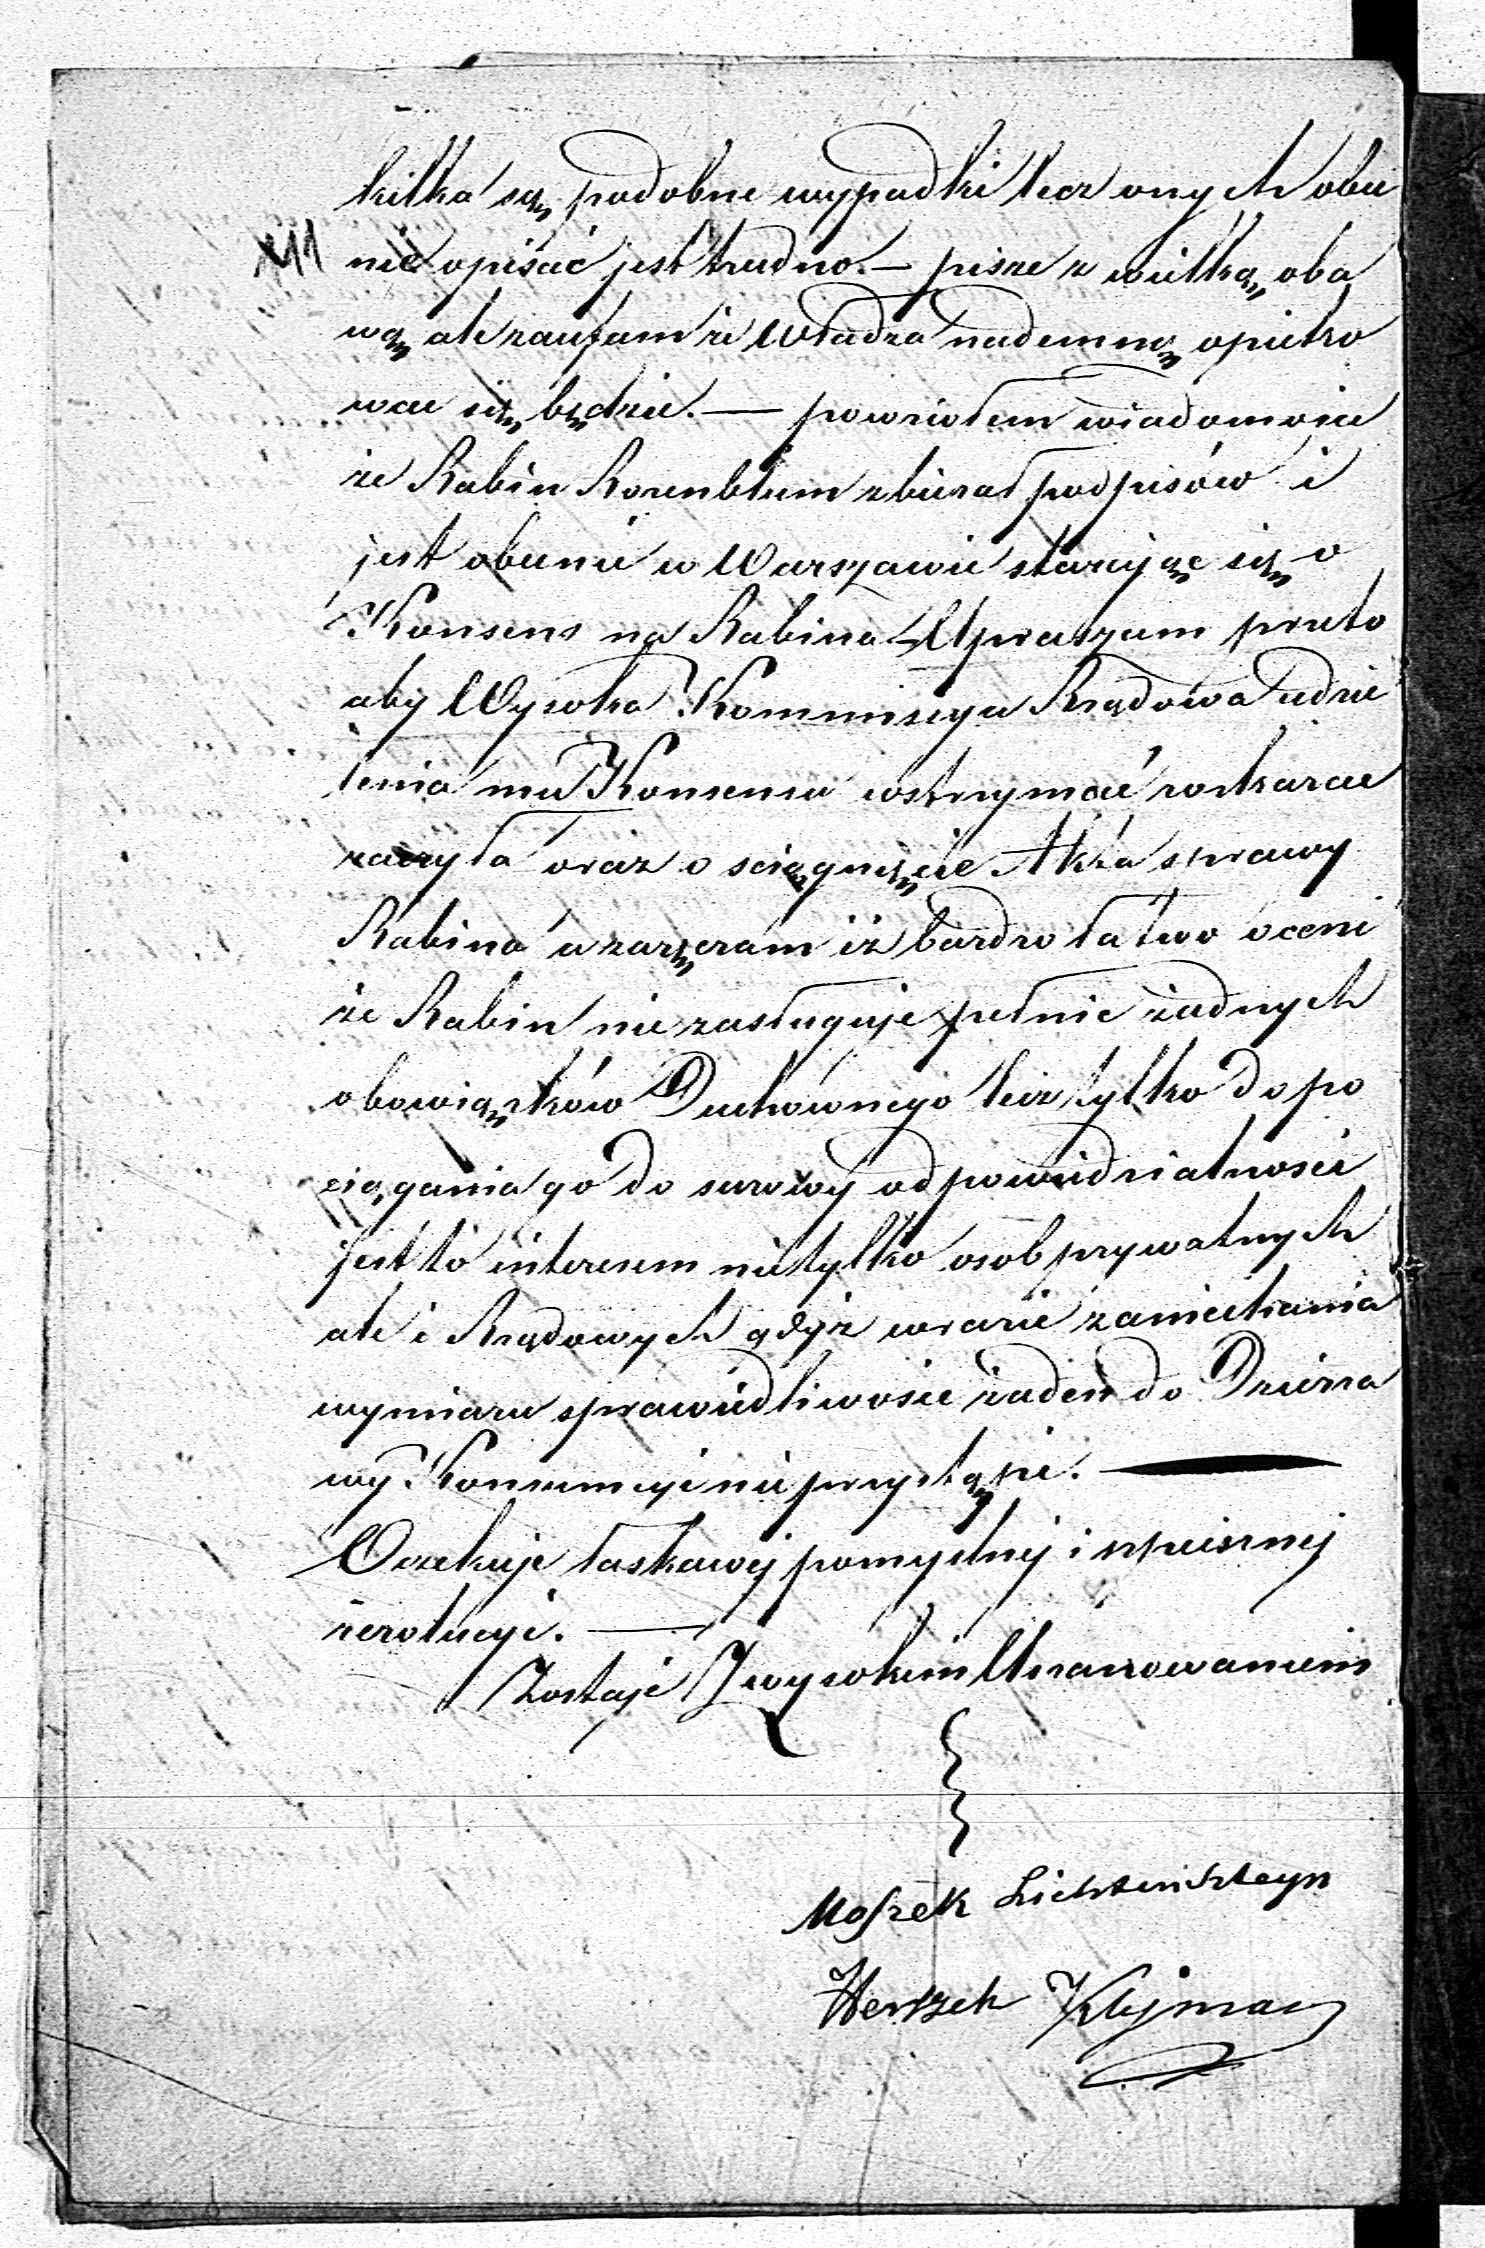 kilka są podobne wypadki lecz onych obu
nie opisać jest trudno. — pisze z wielką oba
wą ale zaufam że Władza nademną opieko
wac się będzie. — powziołem wiadomosci
że Rabin Rozenblum zbierał podpisów i
jest obecnie w Warszawie starając się o
Konsens na Rabina Upraszam prze to
aby Wysoka Kommissya Rządowa udzie
lenia mu Konsensu wstrzymać rozkazac
raczyła oraz o sciągnięcie Akta sprawy
Rabina a zaręczam iż bardzo łatwo oceni
że Rabin nie zasługuje pełnic żadnych
obowiązków Duchównego lecz tylko do po
ciągania go do surowy odpowiedzialnosci
jest to interesem nie tylko osob prywatnych
ale i Rządowych gdyż w razie zaniechania
wymiaru sprawiedliwosci żaden do Dzierza
wy Konsumcyi nie przystąpi. —
Oczekuje łaskawej pomyslnej i spiesznej
rezolucyi. —
Zostaje Z wysokiem Uszanowaniem
Moszek Lichtensteyn
Herszek Klejman